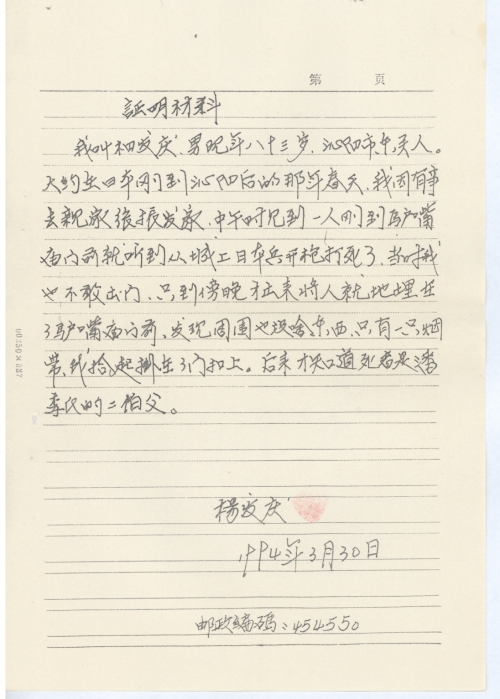 第 页
証明材料
我叫杨发庆 男现年八十三岁，沁阳市东关人。
大约在日本刚到沁阳后的那年春天，我因有事
去亲家张振发家，中午时见到一人刚到马户嘴
庙门前就听到从城上日本兵开枪打死了，当时我
也不敢出门，只到傍晚才出来将人就地埋在
了马户嘴庙门前，发现周围也没啥东西，只有一只烟
带，我拾起掛在了门扣上。后来才知道死者是潘
李氏的二伯父。
杨发庆
1994年3月30日
邮政编码：454550